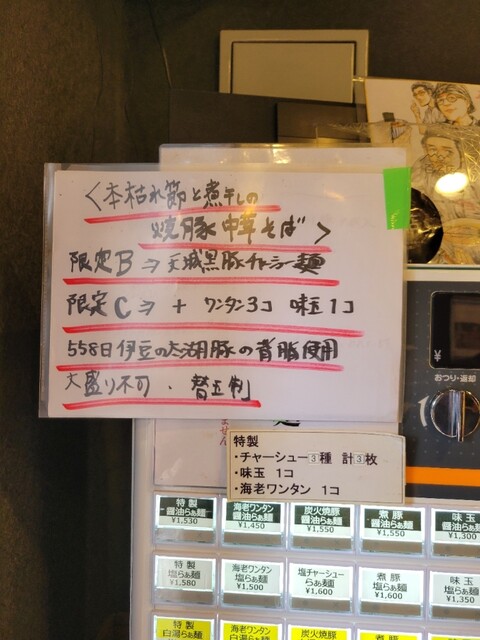 <本枯れ節と煮干しの
焼豚中華そば>
限定B⇒天城黒豚チャーシュー麺
限定C⇒ + ワンタン3コ 味玉1コ
558日伊豆の太湖豚の背脂使用
大盛り不可・替玉別
ません
特製
・チャーシュー③種 計③枚
・味玉 1コ
・海老ワンタン 1コ
¥
おつり・返却
1
特製
醤油らぁ麺
¥1,530
海老ワンタン
醤油らぁ麺
¥1,450
炭火焼豚
醤油らぁ麺
¥1,550
煮豚
醤油らぁ麺
¥1,550
味玉
醤油らぁ麺
¥1,300
特製
塩らぁ麺
¥1,580
海老ワンタン
塩らぁ麺
¥1,500
塩チャーシュー
らぁ麺
¥1,600
煮豚
塩らぁ麺
¥1,600
味玉
塩らぁ麺
¥1,350
特製
白湯らぁ麺
海老ワンタン
白湯らぁ麺
炭火焼豚
煮豚